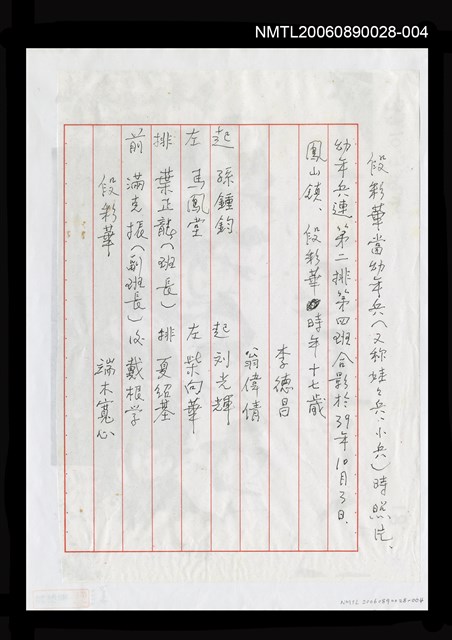 NMTL20060890028-004
段彩華當幼年兵(又称娃々兵、小兵)時照片、
幼年兵連第二排第四班合影於39年10月3日、
鳳山鎮、段彩華時年十七歲
李德昌
翁偉倩
起 孫鍾鈞 起 刘光輝
左 馬鳳堂 左 柴向華
排 葉正龍(班長) 排 夏紹基
前 滿克振(副班長) 後 戴根学
段彩華 端木寬心
NMTL 20060890028-004